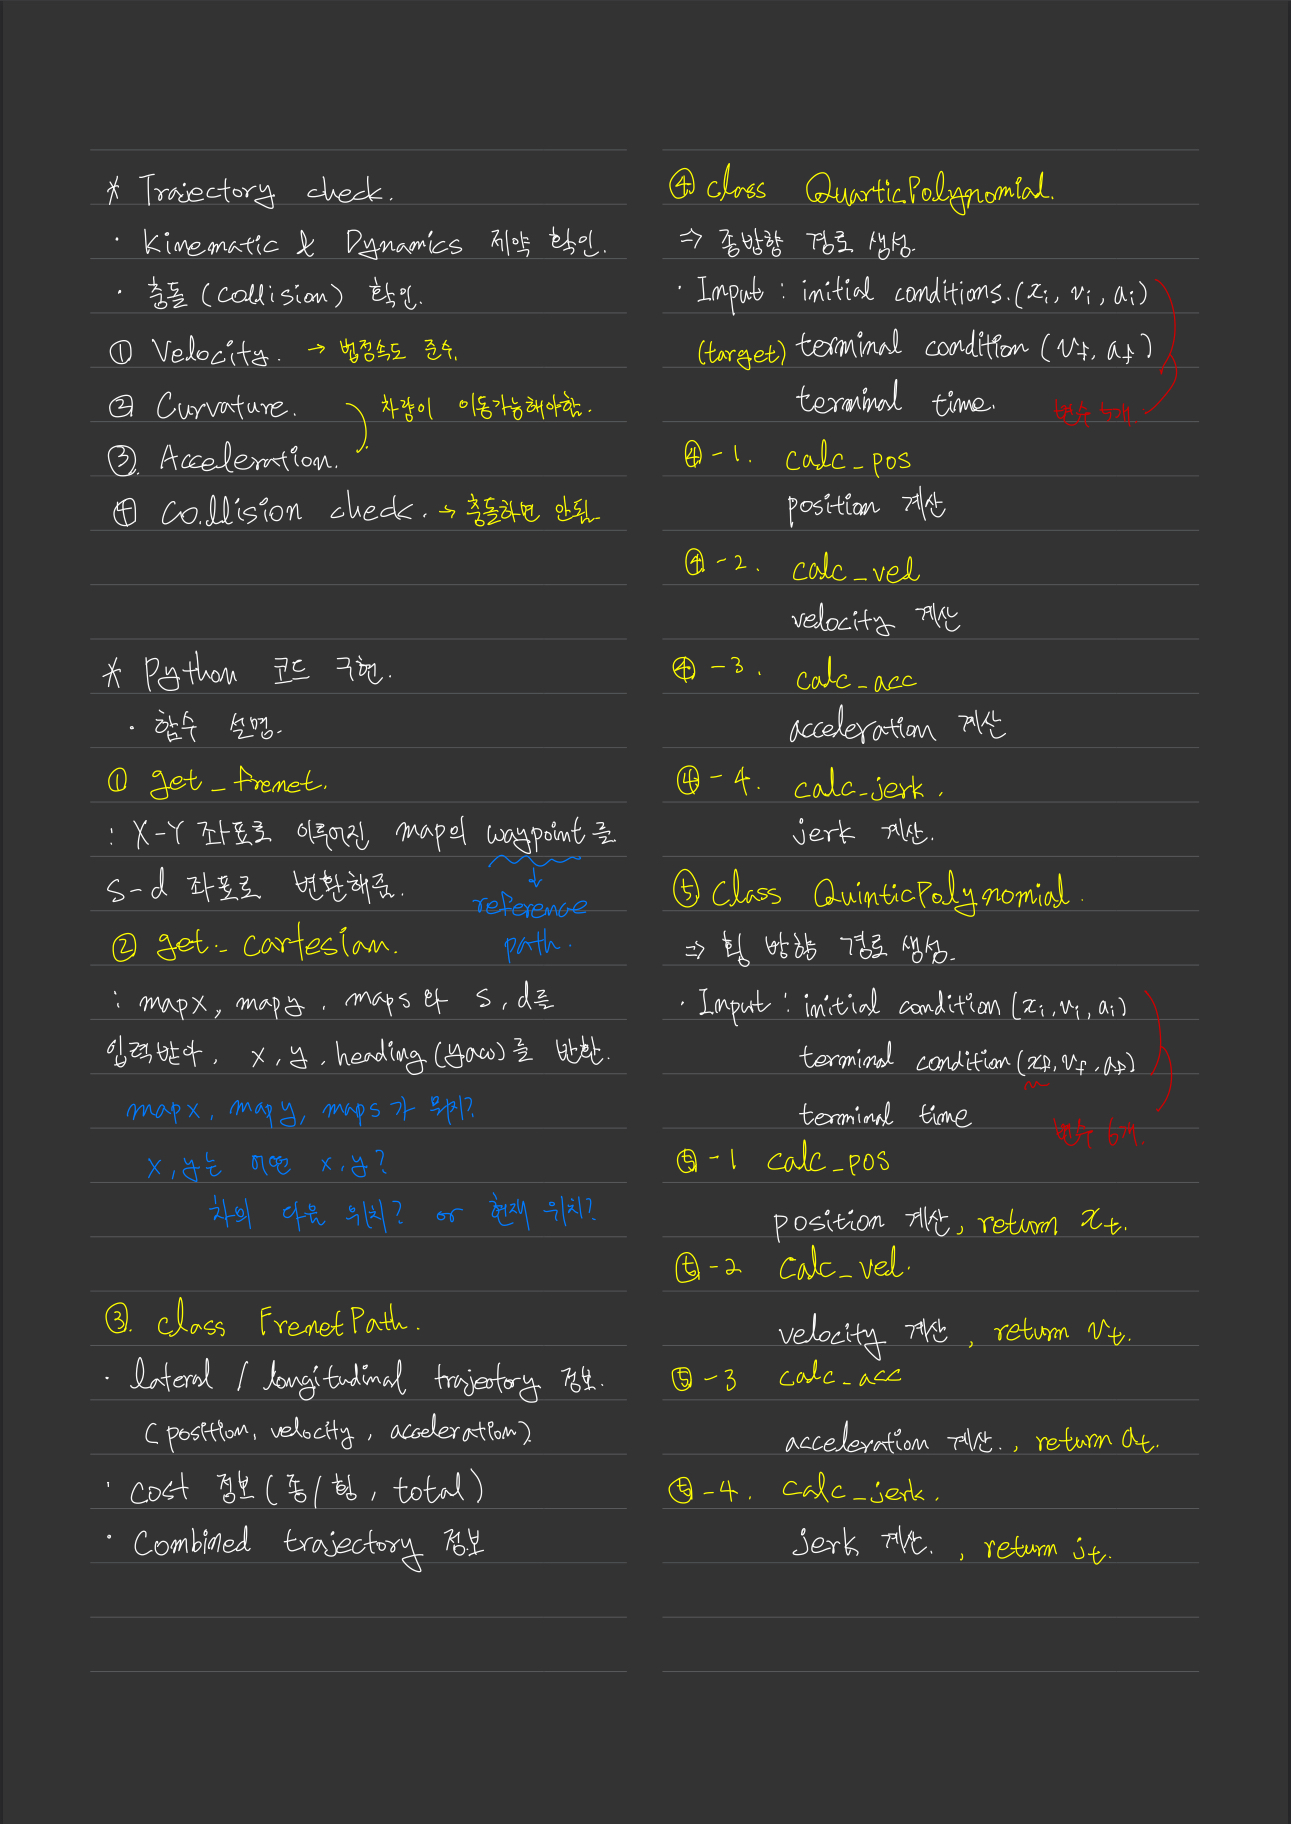 * Trajectory check.
· Kinematic & Dynamics 제약 확인.
· 충돌 (Collision) 확인.
① Velocity. → 법정속도 준수.
② Curvature. 차량이 이동가능해야함.
③. Acceleration.
④ Collision check. → 충돌하면 안됨.
* Python 코드 구현.
· 함수 설명.
① get_frenet.
: X-Y 좌표로 이루어진 map의 waypoint를
s-d 좌표로 변환해줌.
↓
reference
path.
② get_cartesian.
: mapx, mapy, maps와 s, d를
입력받아, x, y, heading (yaw)를 반환.
mapx, mapy, maps가 뭐지?
x, y는 어떤 x, y?
차의 다음 위치? or 현재 위치?
③. class FrenetPath.
· lateral / longitudinal trajectory 정보.
(position, velocity, acceleration)
· cost 정보 (종/횡, total)
· Combined trajectory 정보
④ class QuarticPolynomial.
⇒ 종방향 경로 생성.
· Input : initial conditions. (xi, vi, ai)
(target) terminal condition (vf, af)
terminal time.
변수 5개
④-1. calc_pos
position 계산
④-2. calc_vel
velocity 계산
④-3. calc_acc
acceleration 계산
④-4. calc_jerk.
jerk 계산.
⑤ Class QuinticPolynomial.
⇒ 횡 방향 경로 생성.
· Input : initial condition (xi, vi, ai)
terminal condition (xf, vf, af)
terminal time
변수 6개.
⑤-1 calc_pos
position 계산, return xt.
⑤-2 calc_vel.
velocity 계산, return vt.
⑤-3 calc_acc
acceleration 계산., return at.
⑤-4. calc_jerk.
jerk 계산., return jt.